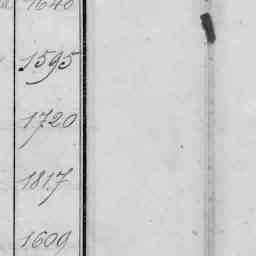 1640
1595
1720
1817
1609